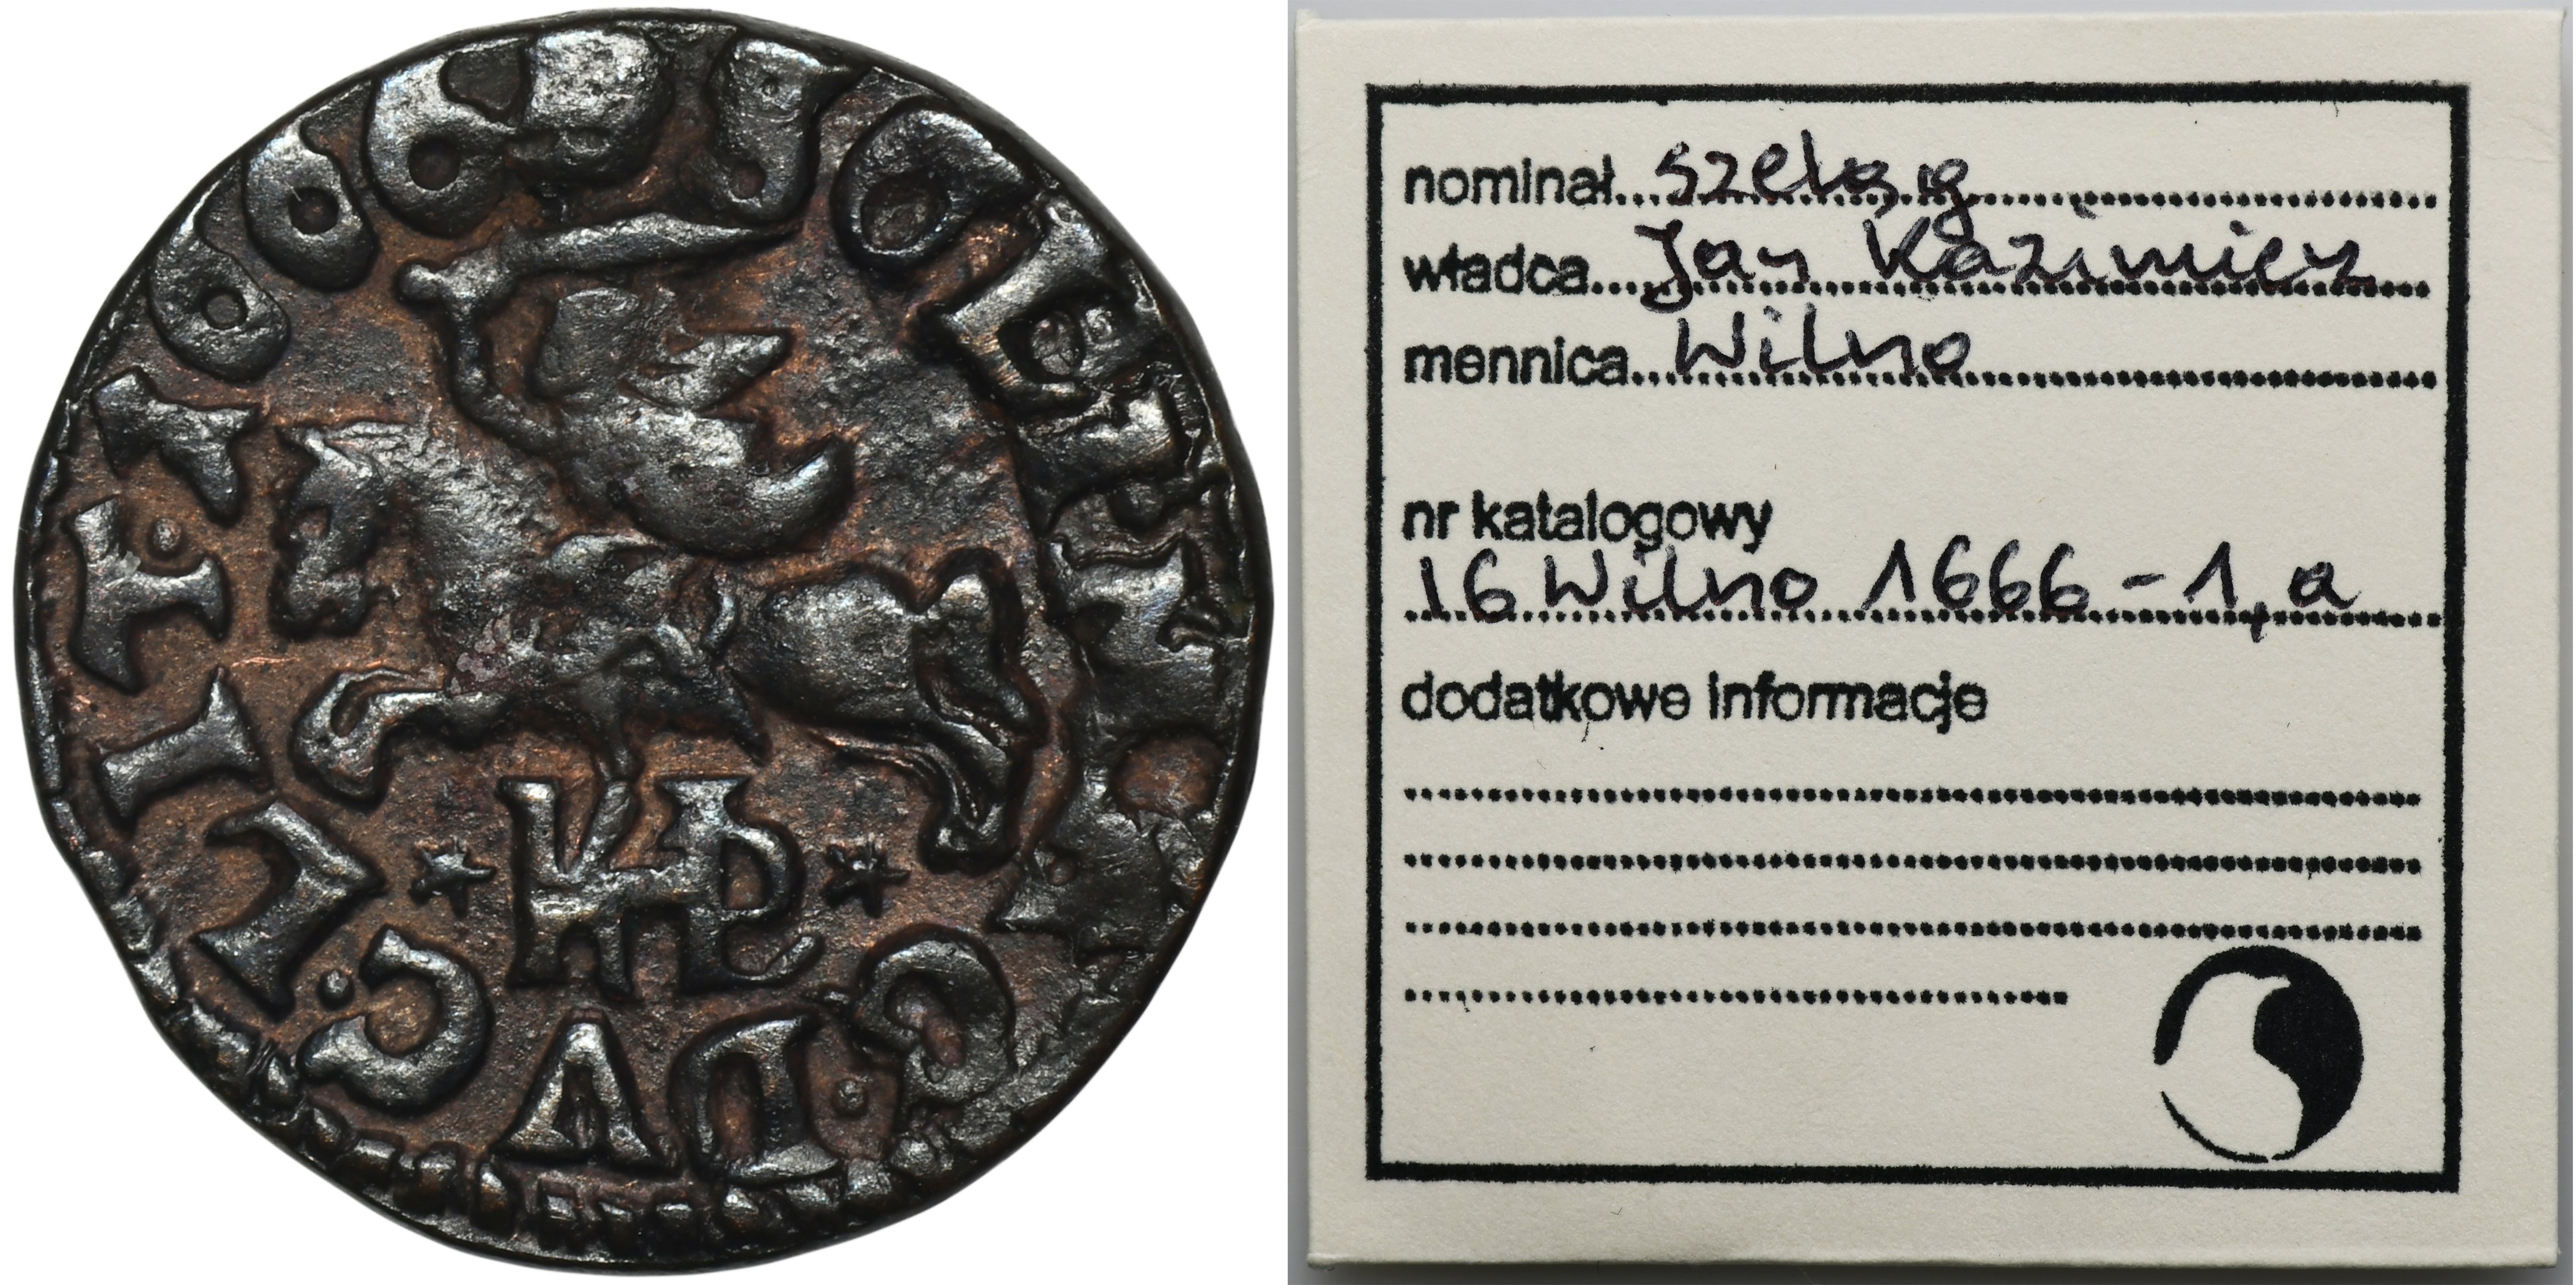 DVC·LIT·1666
HKPL
nominał szeląg
władca Jan Kazimierz
mennica Wilno
nr katalogowy
16 Wilno 1666-1,a
dodatkowe informacje